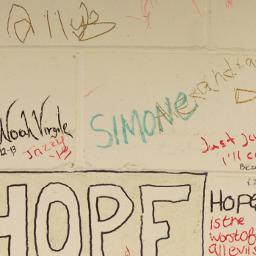 Noah Virgile
12-13
Jazzy
SIMONE
Just Ju
I'll c
Bec
HOPE
HOPE
is the
worst of
all evils